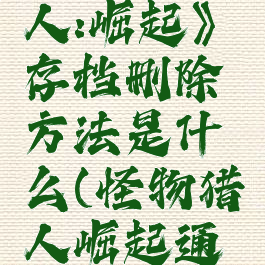 人:崛起》
存档删除
方法是什
么(怪物猎
人崛起通